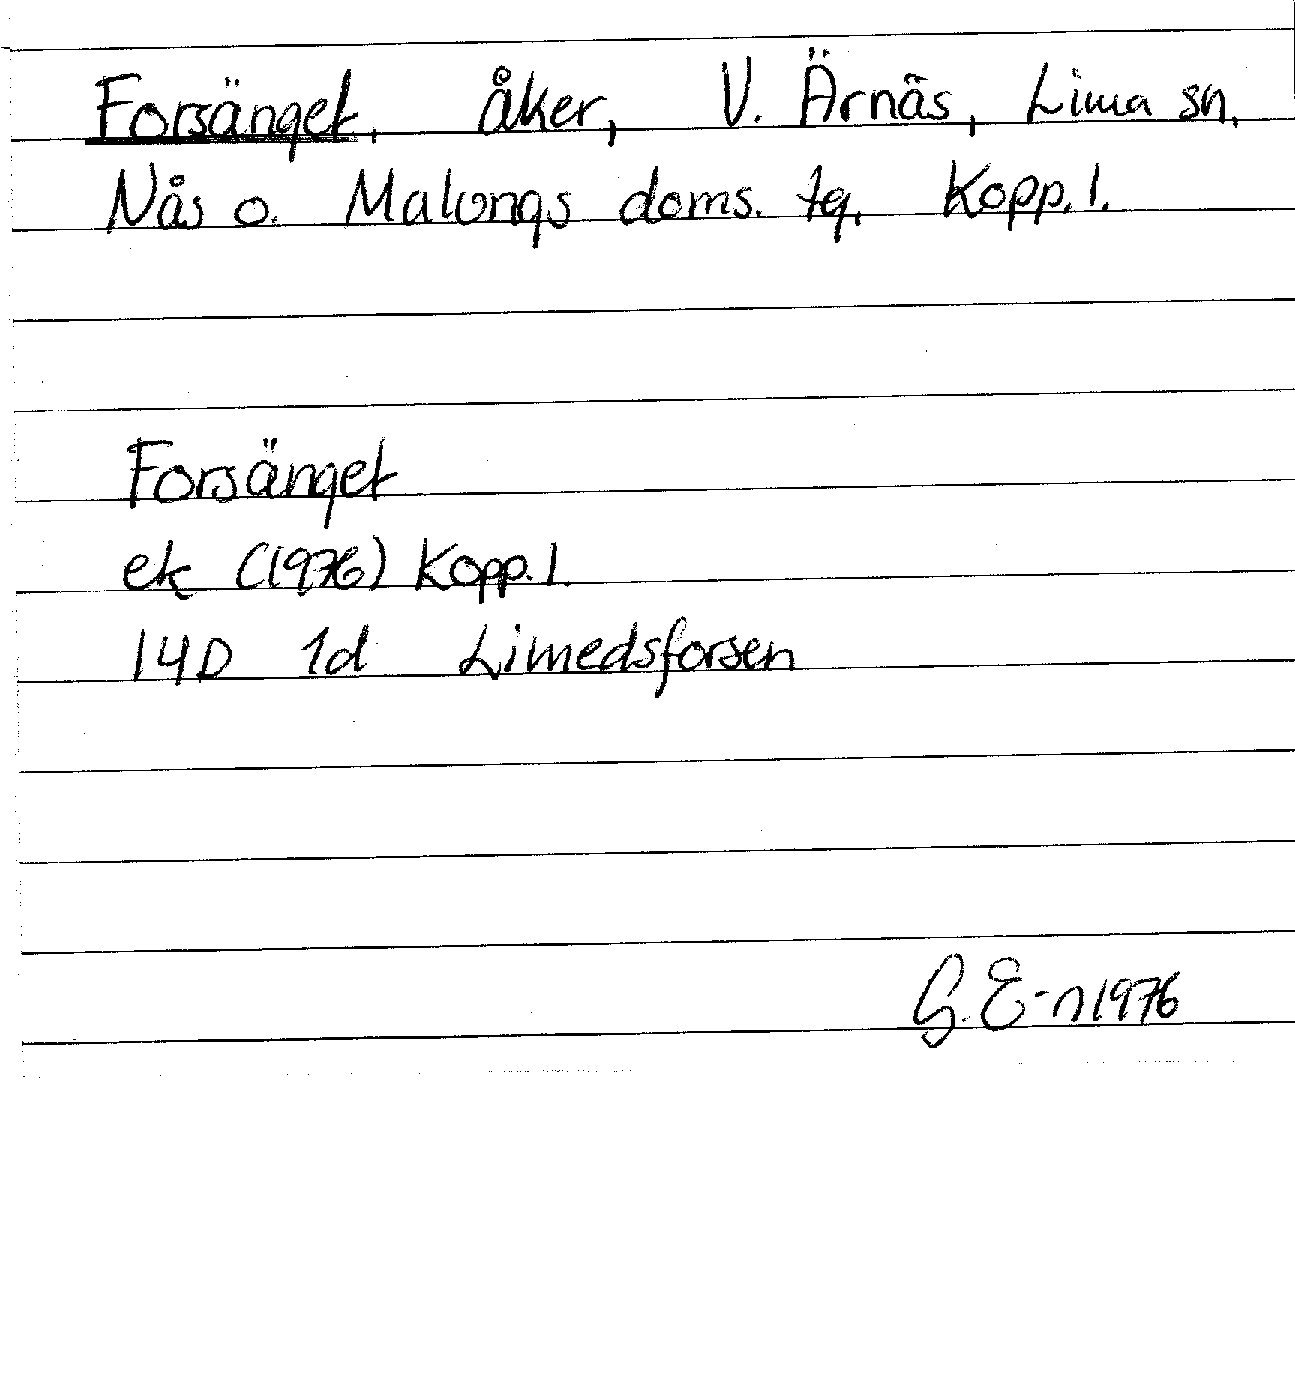 Forsänget, åker, V. Ärnäs, Lima sn.
Nås o. Malungs doms. tg. Kopp. l.
Forsänget
ek (1976) Kopp. l.
14D 1d Limedsforsen
G. E-n 1976